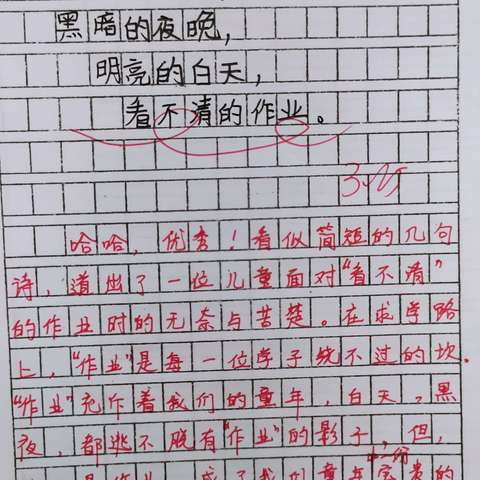 黑暗的夜晚，
明亮的白天，
看不清的作业。
哈哈，优秀！看似简短的几句
诗，道出了一位儿童面对“看不清”
的作业时的无奈与苦楚。在求学路
上，“作业”是每一位学子绕不过的坎。
“作业”充斥着我们的童年，白天，黑
夜，都逃不脱有“作业”的影子，但，
是作业
成了我们童年中一份宝贵的